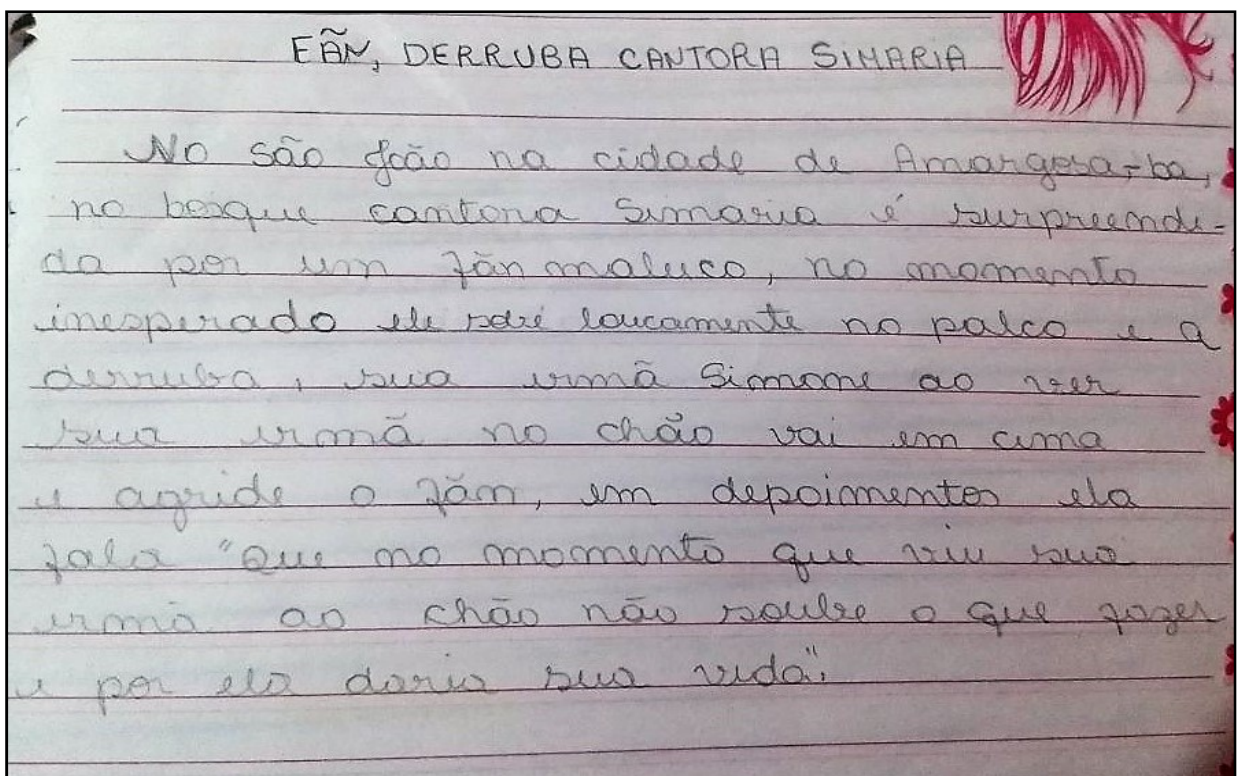 FÃN, DERRUBA CANTORA SIMARIA
No são João na cidade de Amargosa-ba,
no bosque cantora Simaria é surpreendi-
da por um fãn maluco, no momento
inesperado ele sobe loucamente no palco e a
derruba, sua irmã Simone ao ver
sua irmã no chão vai em cima
e agride o fãn, em depoimentos ela
fala "Que no momento que viu sua
irmã ao chão não soube o que fazer
e por ela daria sua vida".